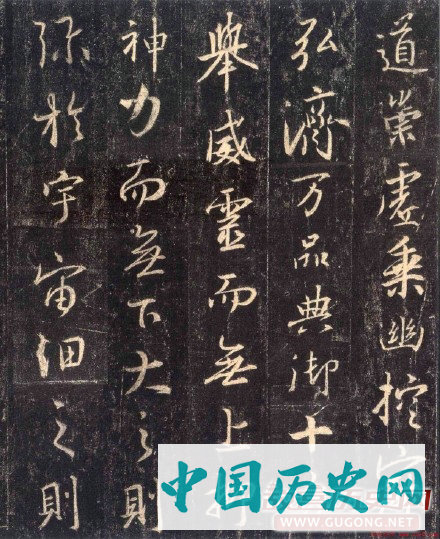 道崇虛乘幽控
弘濟万品典御十
舉威靈而無上
神力而無下大之則
弥於宇宙細之則
中国历史网
WWW.GUGONG.NET